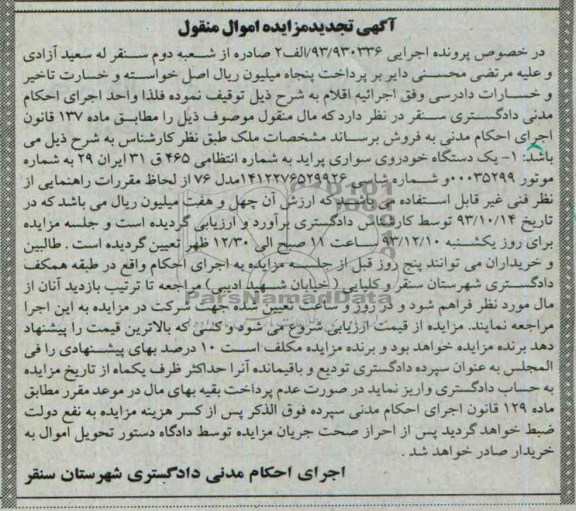 آگهی تجدیدمزایده اموال منقول
در خصوص پرونده اجرایی ۹۳/۹۳۰۳۳۶/الف۲ صادره از شعبه دوم سنقر له سعید آزادی
و علیه مرتضی محسنی دایر بر پرداخت پنجاه میلیون ریال اصل خواسته و خسارت تاخیر
و خسارات دادرسی وفق اجرائیه اقلام به شرح ذیل توقیف نموده فلذا واحد اجرای احکام
مدنی دادگستری سنقر در نظر دارد که مال منقول موصوف ذیل را مطابق ماده ۱۳۷ قانون
اجرای احکام مدنی به فروش برساند مشخصات ملک طبق نظر کارشناس به شرح ذیل می
باشد: ۱- یک دستگاه خودروی سواری پراید به شماره انتظامی ۴۶۵ق ۳۱ ایران ۲۹ به شماره
موتور ۰۰۰۳۵۲۹۹و شماره شاسی ۱۴۱۲۲۷۶۵۲۹۹۲۶مدل ۷۶ از لحاظ مقررات راهنمایی از
نظر فنی غیر قابل استفاده می باشد که ارزش آن چهل و هفت میلیون ریال می باشد که در
تاریخ ۹۳/۱۰/۱۴ توسط کارشناس دادگستری برآورد و ارزیابی گردیده است و جلسه مزایده
برای روز یکشنبه ۹۳/۱۲/۱۰ ساعت ۱۱ صبح الی ۱۲/۳۰ ظهر تعیین گردیده است . طالبین
و خریداران می توانند پنج روز قبل از جلسه مزایده به اجرای احکام واقع در طبقه همکف
دادگستری شهرستان سنقر و کلیایی ( خیابان شهید ادیبی) مراجعه تا ترتیب بازدید آنان از
مال مورد نظر فراهم شود و در روز و ساعت تعیین شده جهت شرکت در مزایده به این اجرا
مراجعه نمایند. مزایده از قیمت ارزیابی شروع می شود و کسی که بالاترین قیمت را پیشنهاد
دهد برنده مزایده خواهد بود و برنده مزایده مکلف است ۱۰ درصد بهای پیشنهادی را فی
المجلس به عنوان سپرده دادگستری تودیع و باقیمانده آنرا حداکثر ظرف یکماه از تاریخ مزایده
به حساب دادگستری واریز نماید در صورت عدم پرداخت بقیه بهای مال در موعد مقرر مطابق
ماده ۱۲۹ قانون اجرای احکام مدنی سپرده فوق الذکر پس از کسر هزینه مزایده به نفع دولت
ضبط خواهد گردید پس از احراز صحت جریان مزایده توسط دادگاه دستور تحویل اموال به
خریدار صادر خواهد شد .
اجرای احکام مدنی دادگستری شهرستان سنقر
ParsNamadData